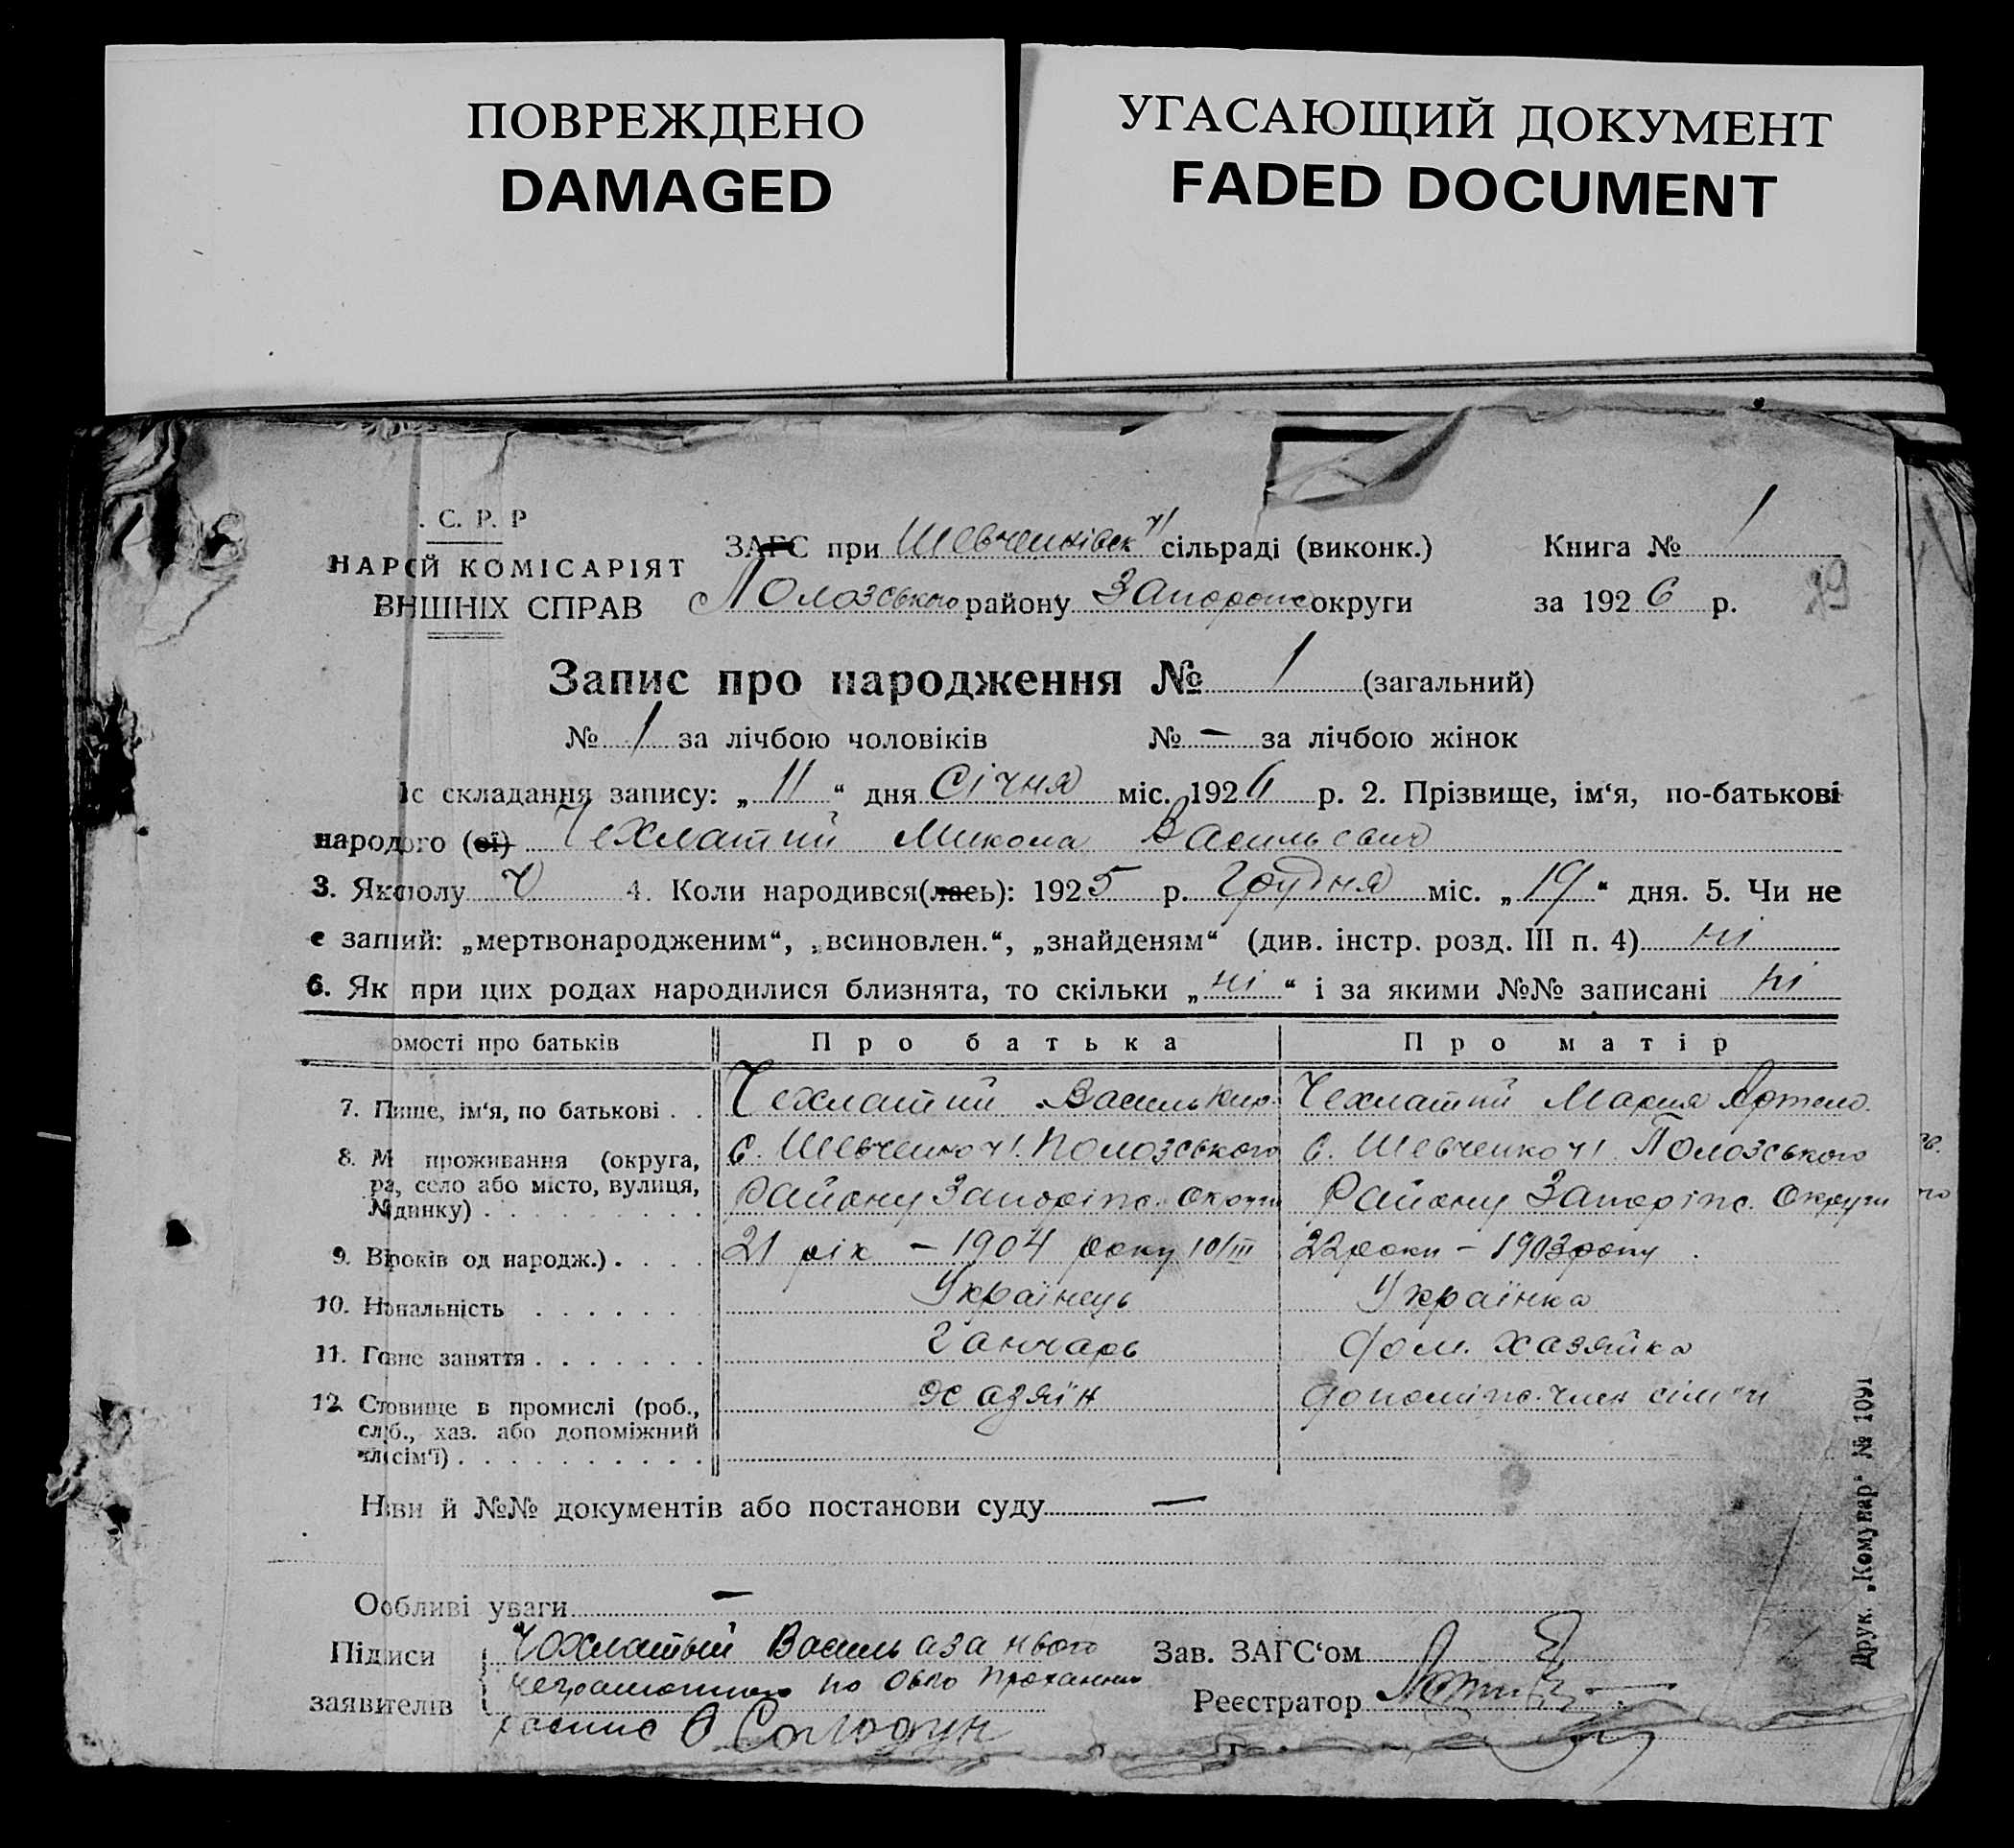 ПОВРЕЖДЕНО
DAMAGED
УГАСАЮЩИЙ ДОКУМЕНТ
FADED DOCUMENT
. С. Р. Р
НАРІЙ КОМІСАРІЯТ
ВНШНІХ СПРАВ
ЗАГС при Шевченківск сільраді (виконк.)
Полозського району Запорожс округи
Книга № 1
за 1926 р.
Запис про народження № 1 (загальний)
№ 1 за лічбою чоловіків № — за лічбою жінок
іс складання запису: „ 11 “ дня Січня міс. 1926 р. 2. Прізвище, ім‘я, по-батькові
народого (ої) Чехлатий Микола Васильевич
3. Якополу Ч 4. Коли народився(лась): 1925 р. Грудня міс. „ 19 “ дня. 5. Чи не
є запий: „мертвонародженим“, „всиновлен.“, „знайденям“ (див. інстр. розд. III п. 4) ні
6. Як при цих родах народилися близнята, то скільки „ ні “ і за якими №№ записані ні
омості про батьків Про батька Про матір
7. Пише, ім‘я, по батькові . . Чехлатий Василь Кир. Чехлатий Мария Артемо.
8. М проживання (округа, ра, село або місто, вулиця, №динку) . . . . . . . . .
с. Шевченко ч1. Полозського
Району Запоріж. Округи
с. Шевченко ч1. Полозського
Району Запоріж. Округи
9. Віроків од народж.) . . . . 21 рік — 1904 року 10/III 22 роки — 1903 року
10. Нональність . . . . . . Українець Українка
11. Говне заняття . . . . . . . Ганчарь дом. хазяйка
12. Стовище в промислі (роб., слб., хаз. або допоміжний члсім‘ї) . . . . . . . . . . хазяїн допоміж. член сім"и
Нви й №№ документів або постанови суду —
Особливі уваги —
Підписи
заявителів
Чохлатый Василь аза нього
неграмотного по Обго прохання
роспис Солодун
Зав. ЗАГС‘ом
Реєстратор
Друк. „Комунар“ № 1091